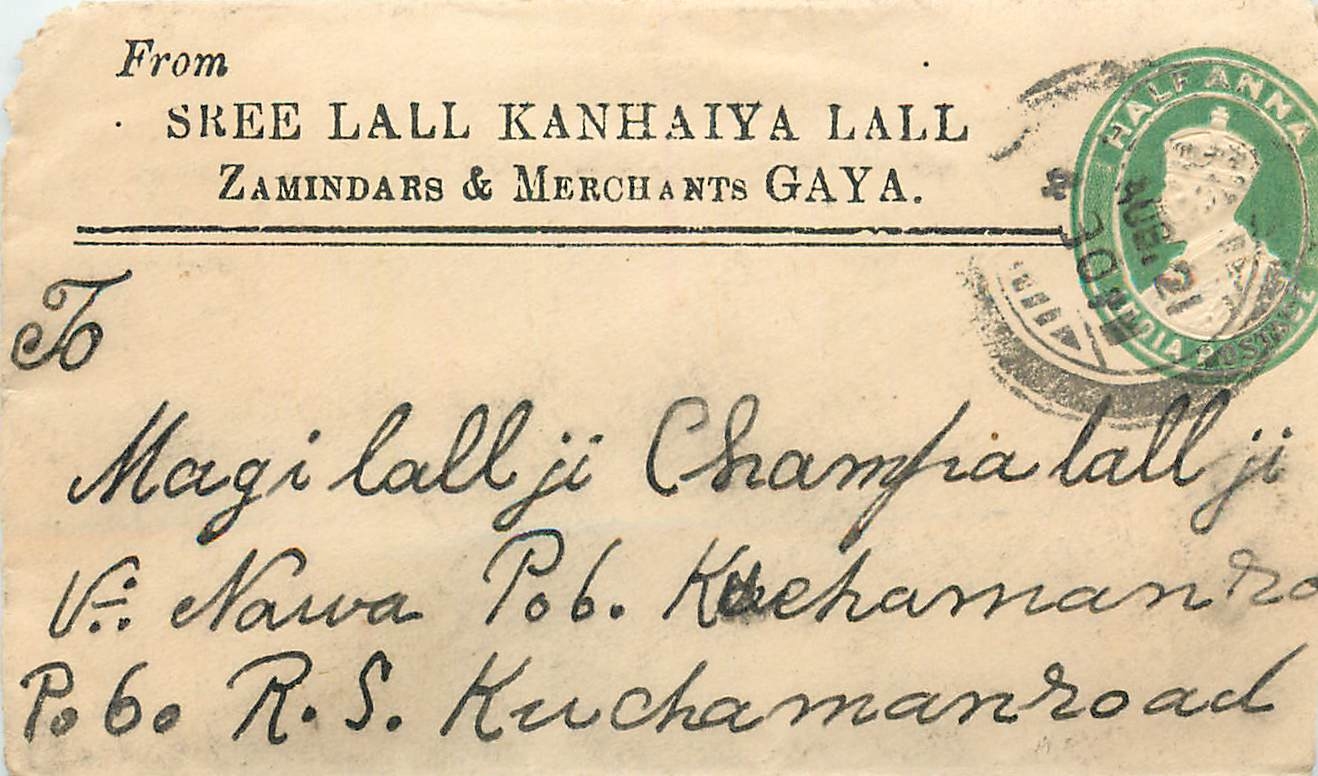 From
SREE LALL KANHAIYA LALL
ZAMINDARS & MERCHANTS GAYA.
HALF ANNA
INDIA POSTAGE
30
AUG. 21
To
Magilallji Champalallji
V:. Nawa P.o. Kuchamanro
P.o. R.S. Kuchamanroad